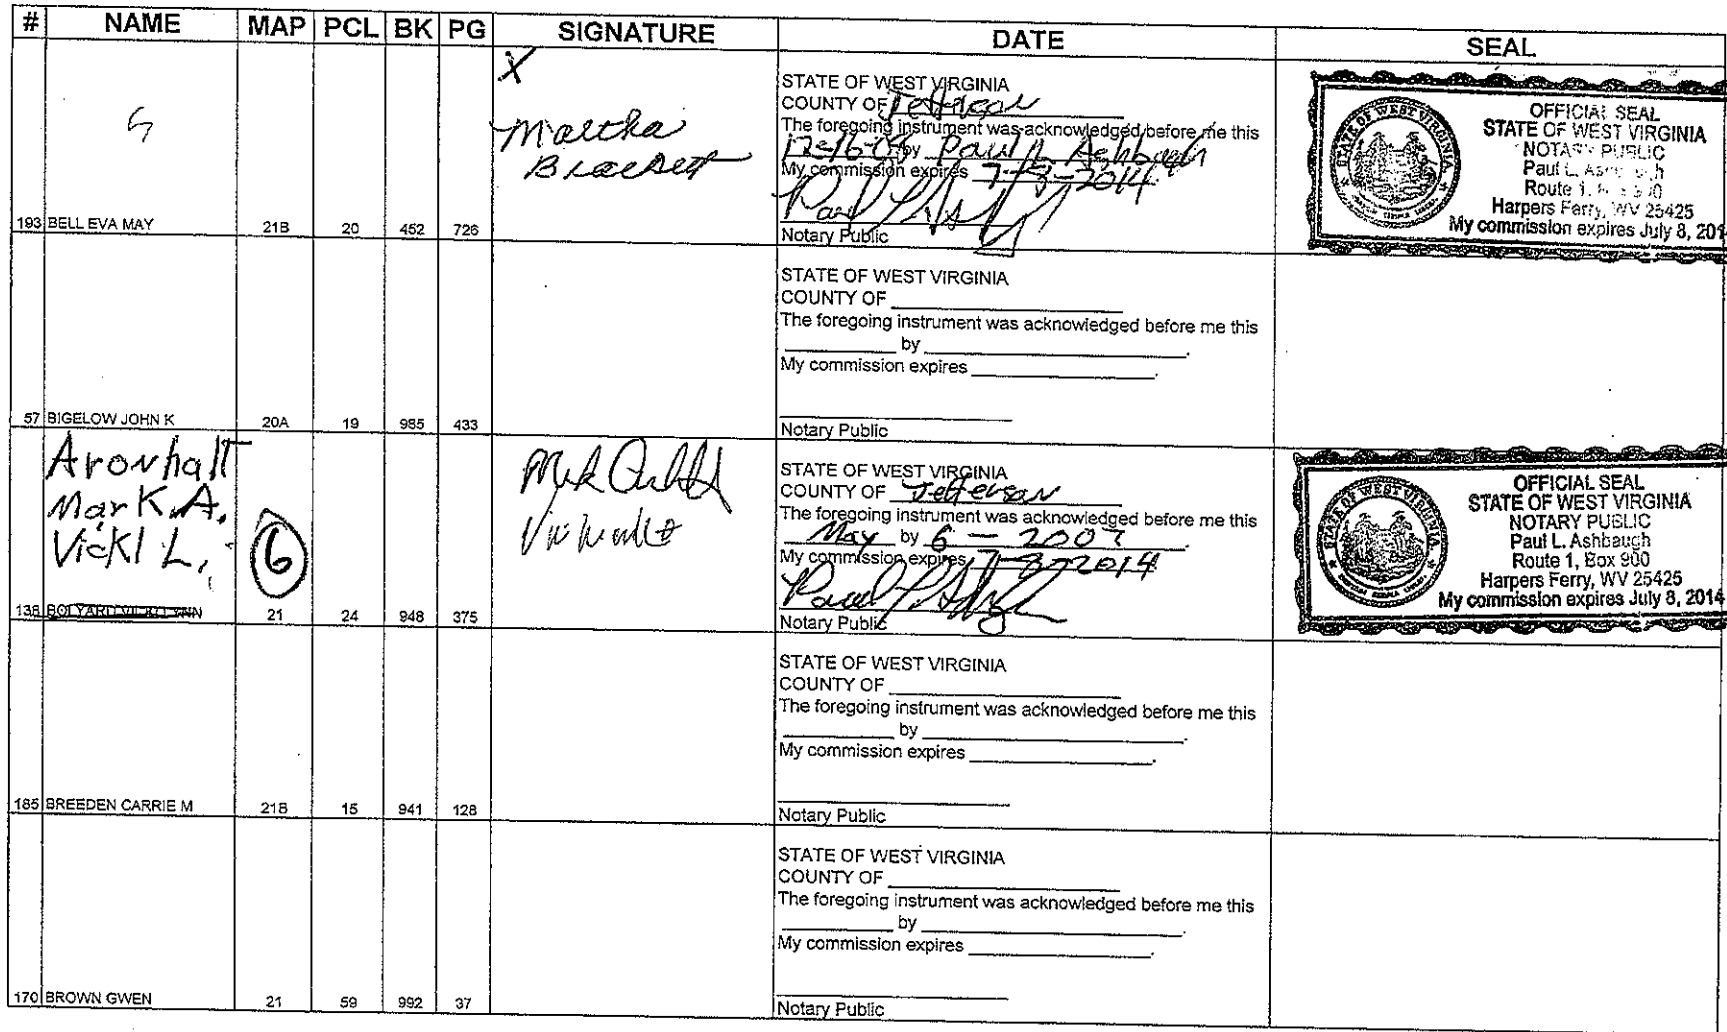 # NAME MAP PCL BK PG SIGNATURE DATE SEAL
X
Martha
STATE OF WEST VIRGINIA
COUNTY OF Jefferson
The foregoing instrument was acknowledged before me this
by Paul L. Ashbaugh
My commission expires 7-8-2014.
Notary Public
OFFICIAL SEAL
STATE OF WEST VIRGINIA
NOTARY PUBLIC
Paul L.
Route 1,
Harpers Ferry, WV 25425
My commission expires July 8, 201
193 BELL EVA MAY 21B 20 452 726
STATE OF WEST VIRGINIA
COUNTY OF
The foregoing instrument was acknowledged before me this
by
My commission expires
Notary Public
57 BIGELOW JOHN K 20A 19 985 433
Aronhalt
Mark A.
Vicki L.
6
STATE OF WEST VIRGINIA
COUNTY OF Jefferson
The foregoing instrument was acknowledged before me this
May by 6 -
My commission expires 7-8-2014
Notary Public
STATE OF WEST VIRGINIA
OFFICIAL SEAL
STATE OF WEST VIRGINIA
NOTARY PUBLIC
Paul L. Ashbaugh
Route 1, Box 900
Harpers Ferry, WV 25425
My commission expires July 8, 2014
138 BOLYARD VICKI LYNN 21 24 948 375
STATE OF WEST VIRGINIA
COUNTY OF
The foregoing instrument was acknowledged before me this
by
My commission expires
Notary Public
185 BREEDEN CARRIE M 21B 15 941 128
STATE OF WEST VIRGINIA
COUNTY OF
The foregoing instrument was acknowledged before me this
by
My commission expires
Notary Public
170 BROWN GWEN 21 59 992 37